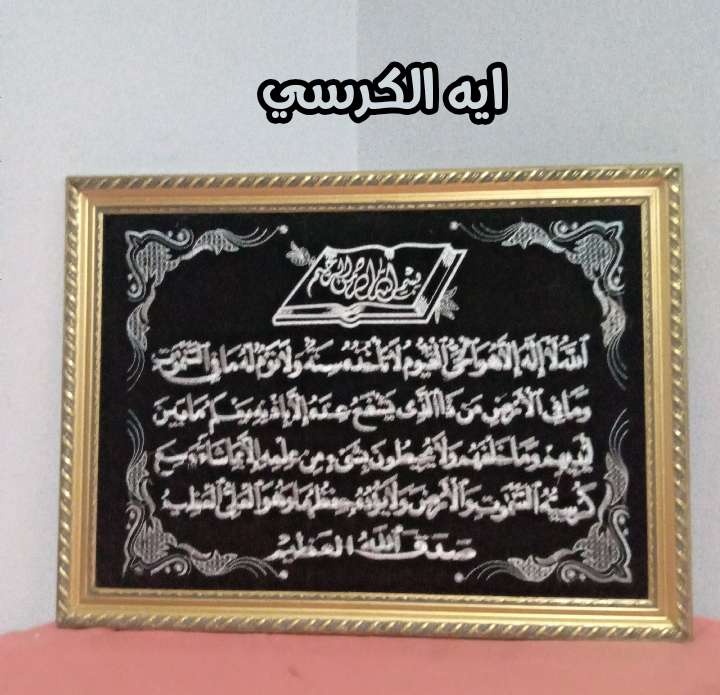 ايه الكرسي
بسم الله الرحمن الرحيم
ٱللَّهُ لَا إِلَٰهَ إِلَّا هُوَ ٱلْحَىُّ ٱلْقَيُّومُ لَا تَأْخُذُهُ سِنَةٌ وَلَا نَوْمٌ لَهُ مَا فِي ٱلسَّمَٰوَٰتِ
وَمَا فِي ٱلْأَرْضِ مَن ذَا ٱلَّذِى يَشْفَعُ عِندَهُ إِلَّا بِإِذْنِهِ يَعْلَمُ مَا بَيْنَ
أَيْدِيهِمْ وَمَا خَلْفَهُمْ وَلَا يُحِيطُونَ بِشَىْءٍ مِنْ عِلْمِهِ إِلَّا بِمَا شَاءَ وَسِعَ
كُرْسِيُّهُ ٱلسَّمَٰوَٰتِ وَٱلْأَرْضَ وَلَا يَئُودُهُ حِفْظُهُمَا وَهُوَ ٱلْعَلِىُّ ٱلْعَظِيمُ
صَدَقَ ٱللَّهُ ٱلْعَظِيمُ